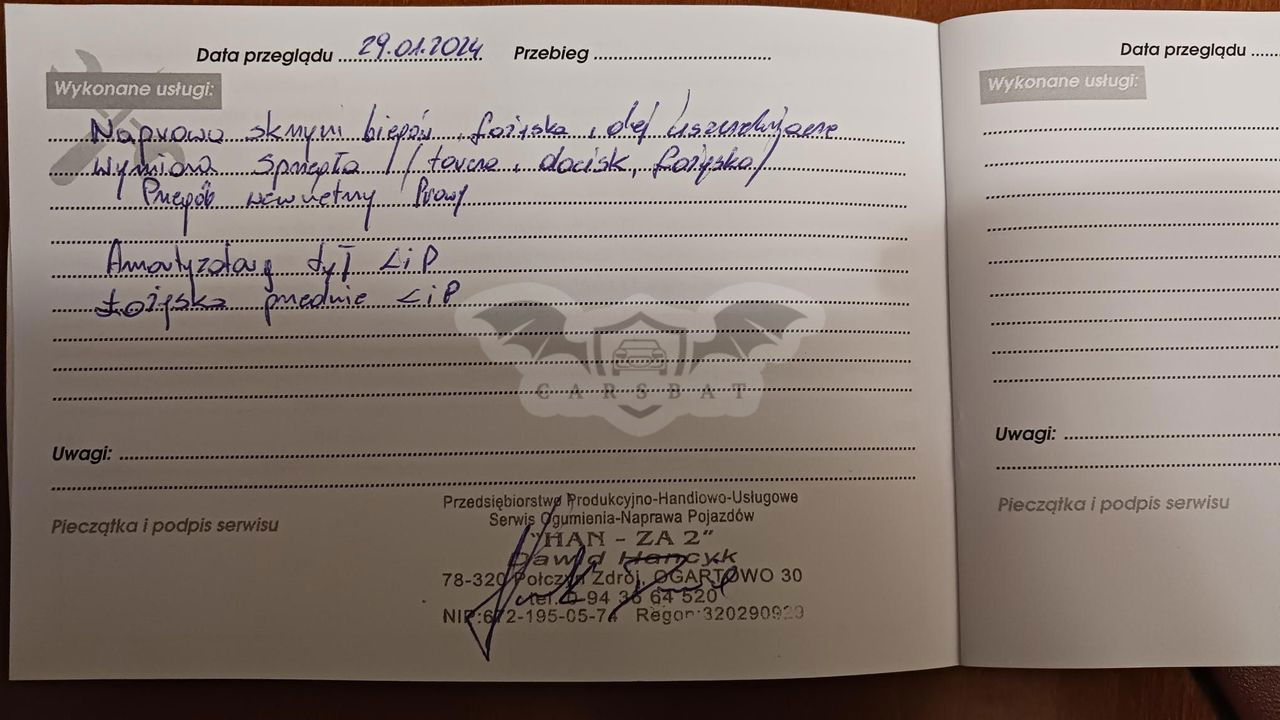 Data przeglądu 29.01.2024 Przebieg
Wykonane usługi:
Naprawa skrzyni biegów, łożyska, olej Uszczelniacze
Wymiana Sprzęgła / tarcza, docisk, łożyska /
Przegób wewnętrzny Prawy
Amortyzatory tył L i P
Łożyska przednie L i P
CARSBAT
Uwagi:
Pieczątka i podpis serwisu
Przedsiębiorstwo Produkcyjno-Handlowo-Usługowe
Serwis Ogumienia-Naprawa Pojazdów
"HAN - ZA 2"
Dawid Hancyk
78-320 Połczyn Zdrój, OGARTOWO 30
tel. 0-94 36 64 520
NIP:672-195-05-74 Regon:320290929
Data przeglądu
Wykonane usługi:
Uwagi:
Pieczątka i podpis serwisu